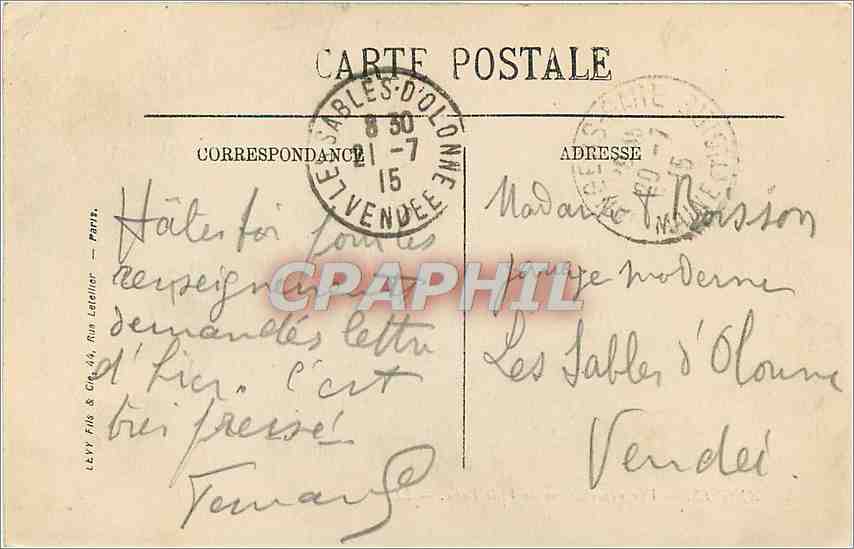 CARTE POSTALE
LES SABLES-D'OLONNE
8 30
21 -7
15
VENDÉE
20 -7
15
CORRESPONDANCE
ADRESSE
Hâtes toi pour les
renseignements
demandés lettre
d'hier. C'est
très pressé
Madame Poisson
garage moderne
Les Sables d'Olonne
Vendée
CPAPHIL
LEVY Fils & Cie, 44, Rue Letellier — Paris.